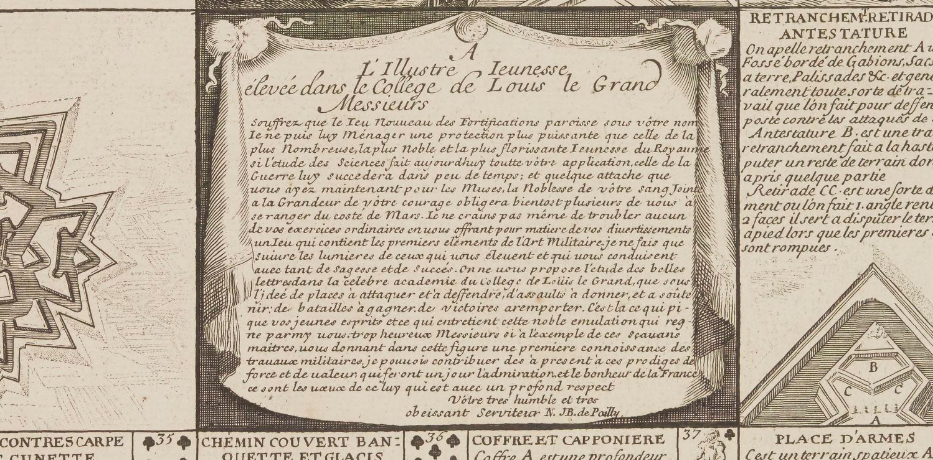 A
L'Illustre Ieunesse
élevée dans le College de Louis le Grand
Messieurs
Souffrez que le Ieu Nouueau des Fortifications paroisse sous vôtre nom
Ie ne puis luy Ménager une protection plus puissante que celle de la
plus Nombreuse, la plus Noble et la plus florissante Ieunesse du Royaume
si l'etude des Sciences fait aujourdhuy toutte vôtre application, celle de la
Guerre luy succedera dans peu de temps; et quelque attache que
vous ayez maintenant pour les Muses, la Noblesse de vôtre sang Joint
a la Grandeur de vôtre courage obligera bientost plusieurs de vous a
se ranger du coste de Mars. Ie ne crains pas même de troubler aucun
de vos exercices ordinaires en vous offrant pour matiere de vos divertissements
un Ieu qui contient les premiers eléments de l'Art Militaire, je ne fais que
suiure les lumieres de ceux qui vous éleuent et qui vous conduisent
auec tant de sagesse et de succés. On ne vous propose l'étude des belles
lettres dans la célebre academie du College de Loüis le Grand, que sous
l'jdeé de places a attaquer et a deffendre, d'assauts a donner, et a soûte
nir, de batailles a gagner, de victoires a remporter. C'est la ce qui pi-
que vos jeunes esprits et ce qui entretient cette noble emulation qui reg-
ne parmy vous, trop heureux Messieurs si a l'exemple de ces scauans
maitres, vous donnant dans cette figure une premiere connoissance des
trauaux militaires, je pouuois contribuer des a present a ces prodiges de
force et de ualeur qui feront un jour l'admiration, et le bonheur de la France
ce sont les vœux de ce luy qui est auec un profond respect
Vôtre tres humble et tres
obeissant Serviteur N. JB. de Poilly
RETRANCHEM.T RETIRAD
ANTESTATURE
On apelle retranchement A u
Fossé bordé de Gabions, Sacs
a terre, Palissades &c. et gene
ralement toute sorte de tra=
vail que l'on fait pour deffen
poste contre les attaques de
Antestature B. est une tra
retranchement fait a la hast
puter un reste de terrain don
a pris quelque partie
Retirade CC. est une sorte d
ment ou l'on fait 1. angle rent
2 faces il sert a disputer le ter
apied lors que les premieres
sont rompues.
B
C
C
A
CONTRESCARPE
ET CUNETTE
35
CHEMIN COUVERT BAN=
QUETTE ET GLACIS
36
COFFRE ET CAPPONIERE
Coffre A est une profondeur
37
PLACE D'ARMES
C'est un terrain spatieux A